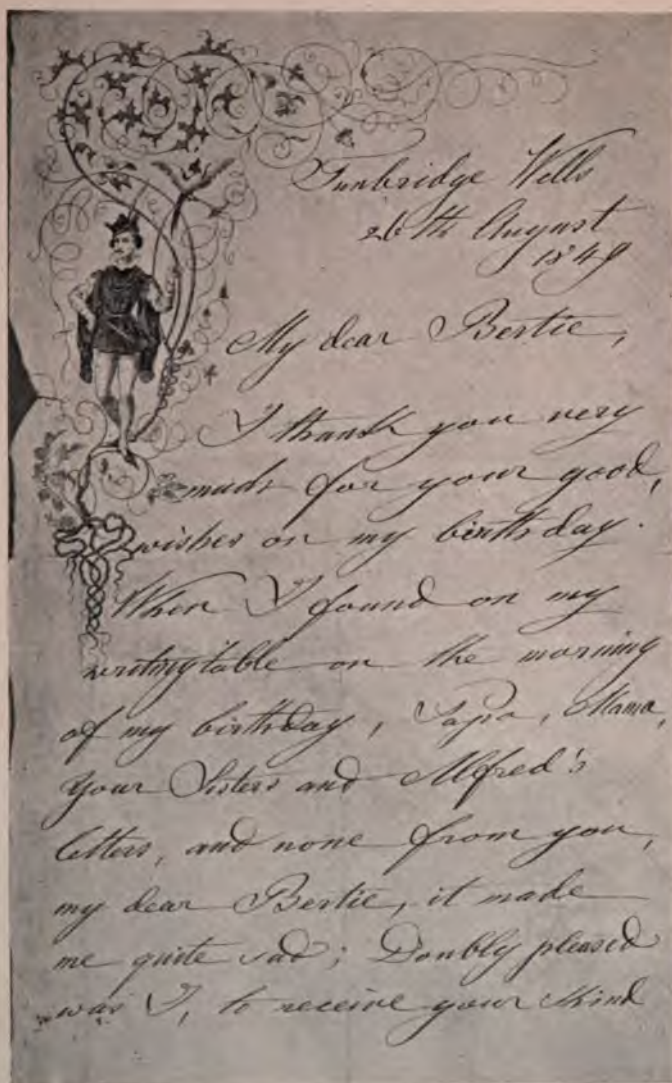 Tunbridge Wells
26th August
1849
My dear Bertie,
I thank you very
much for your good,
wishes on my birthday.
When I found on my
writingtable on the morning
of my birthday, Papa, Mama,
your Sisters and Alfred's
letters, and none from you,
my dear Bertie, it made
me quite sad; Doubly pleased
was I, to receive your kind